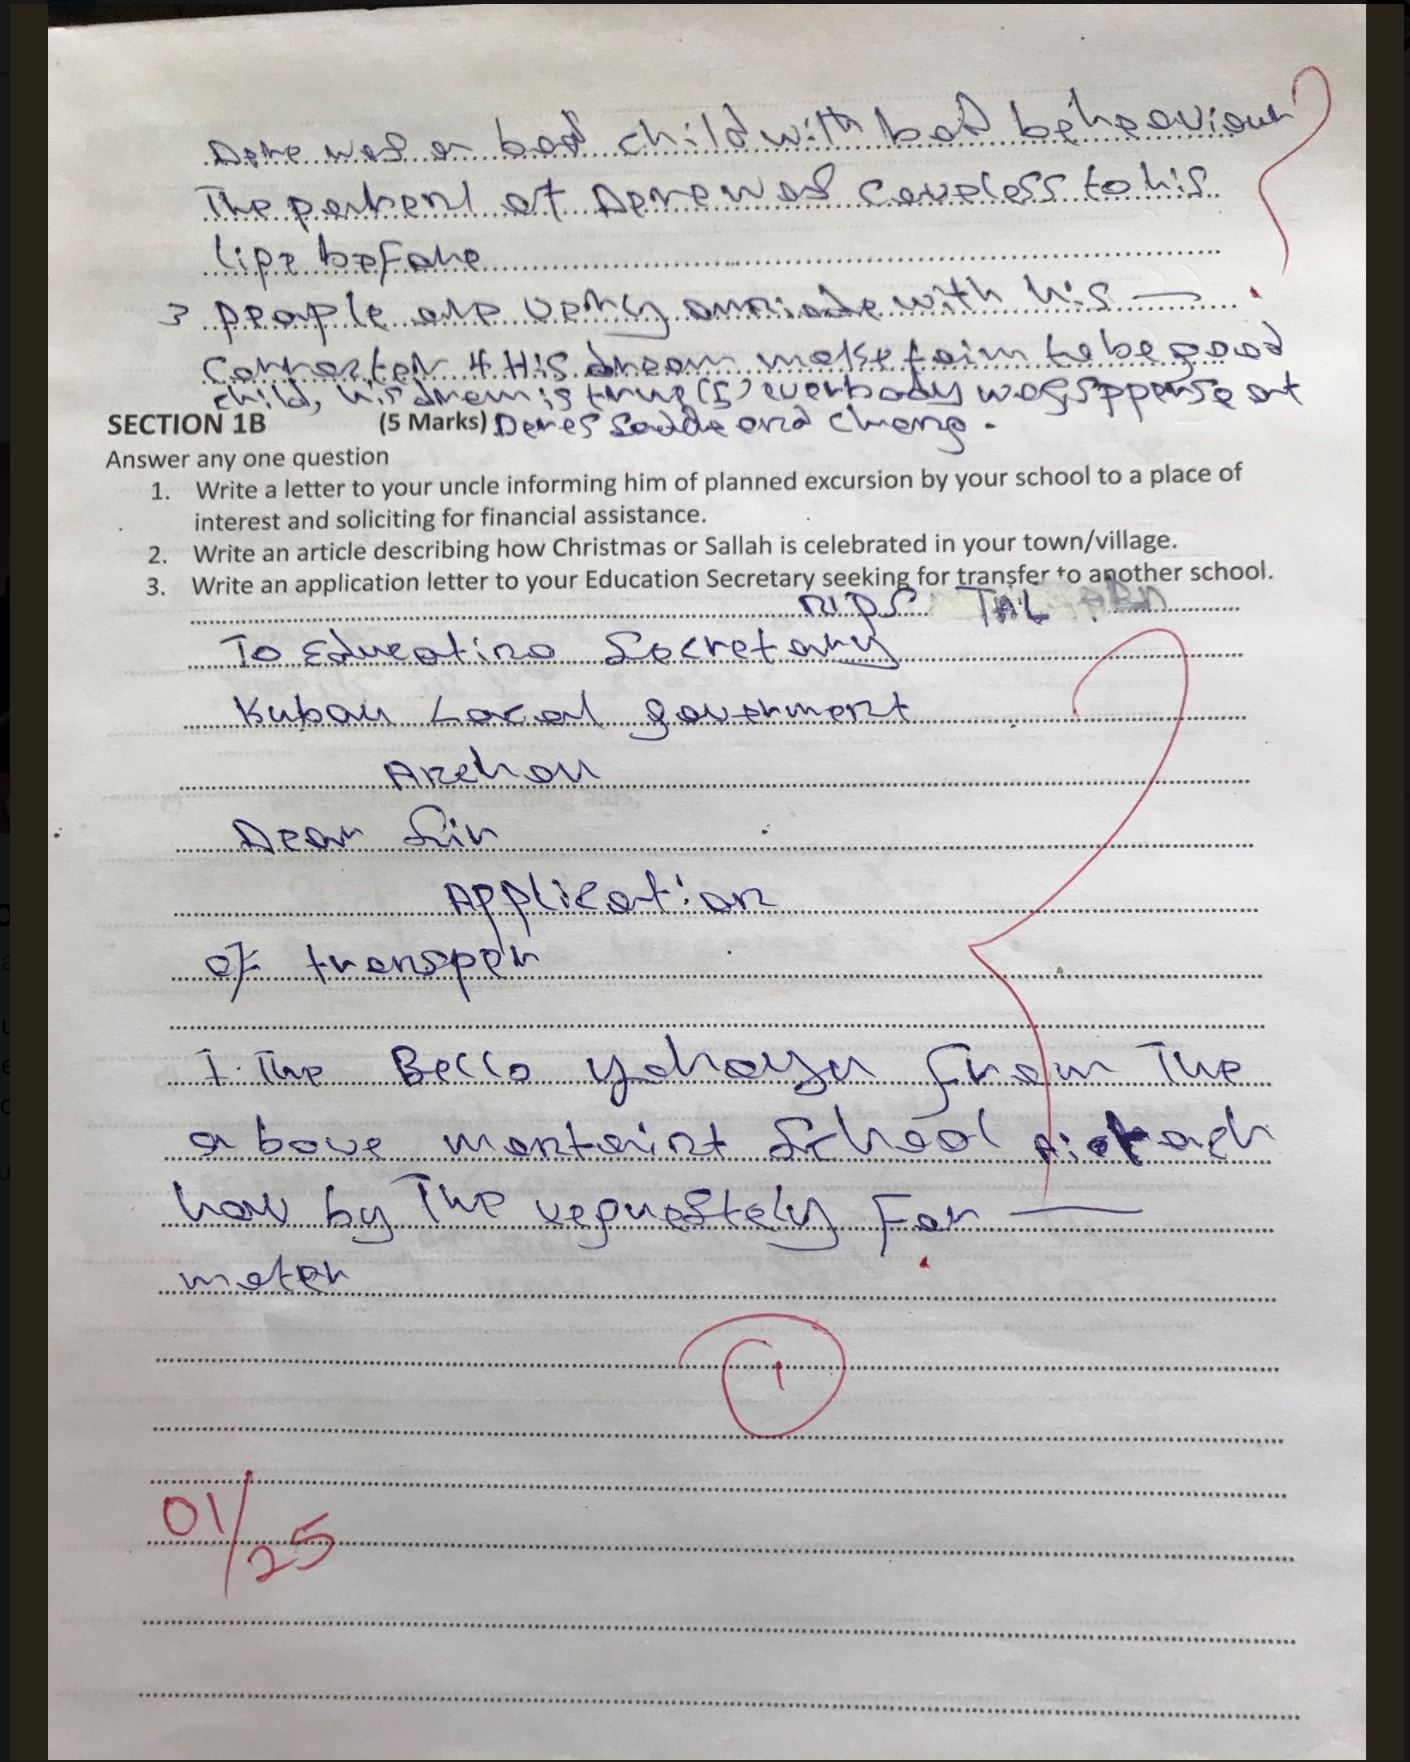 Dere was a bad child with bad behaaviour
The parhent of Derewas Coupless to his
lipe before
3 people are verhy anniade with his —
Corracter 4 His dream make faim to be good
child, his drem is true (5) everbody wasspperse at
SECTION 1B (5 Marks) Deres Sadde and cheang.
Answer any one question
1. Write a letter to your uncle informing him of planned excursion by your school to a place of
interest and soliciting for financial assistance.
2. Write an article describing how Christmas or Sallah is celebrated in your town/village.
3. Write an application letter to your Education Secretary seeking for transfer to another school.
To Educatino Secretary
Kubau Local government
Anchau
Dear Sir
Application
of transper
I The Bello yahaya from The
above mentaint School
haw by The requestely For —
meter
1
01/25